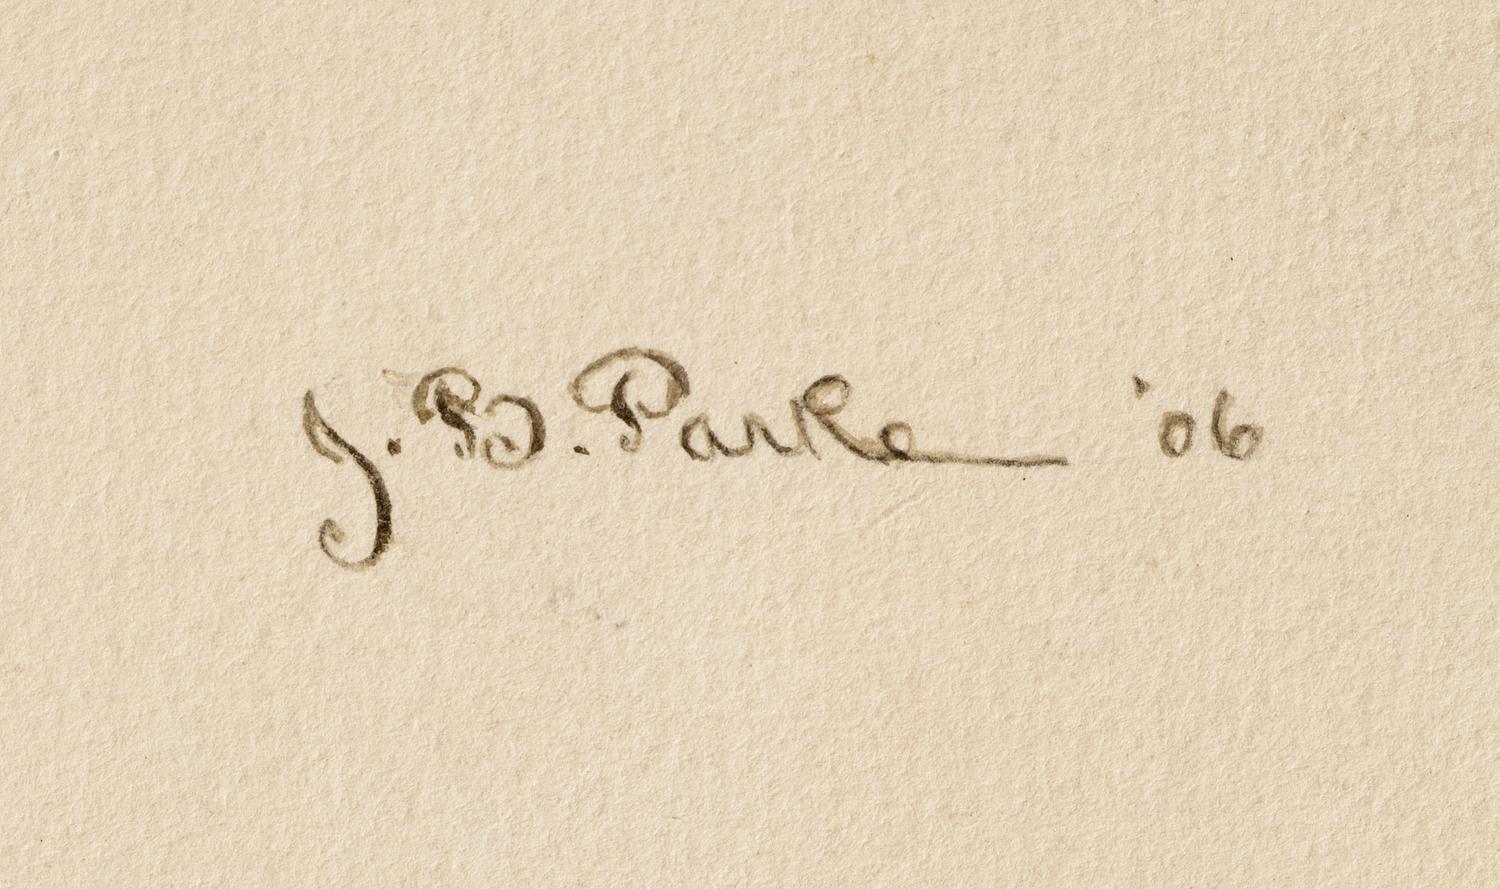 J. B. Parke '06